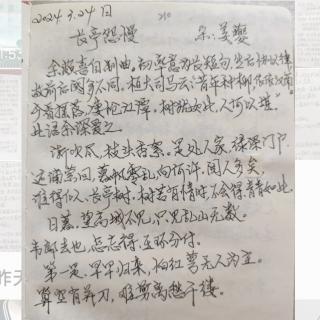 2024.3.24日
210
长亭怨慢 宋:姜夔
余颇喜自制曲,初率意为长短句,然后协以律,
故前后阕多不同。桓大司马云:"昔年种柳,依依汉南,
今看摇落,凄怆江潭,树犹如此,人何以堪"
此语余深爱之
渐吹尽,枝头香絮,是处人家,绿深门户,
远浦萦回,暮帆零乱向何许,阅人多矣,
谁得似,长亭树,树若有情时,不会得青青如此
日暮,望高城不见,只见乱山无数,
韦郎去也,怎忘得,玉环分付。
第一是,早早归来,怕红萼无人为主,
算空有并刀,难剪离愁千缕。